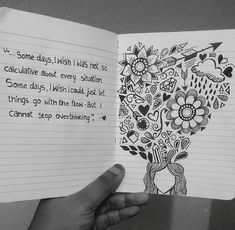 "... Some days, I wish I was not so
calculative about every situation.
Some days, I wish I could just let
things go with the flow. But I
cannot stop overthinking."